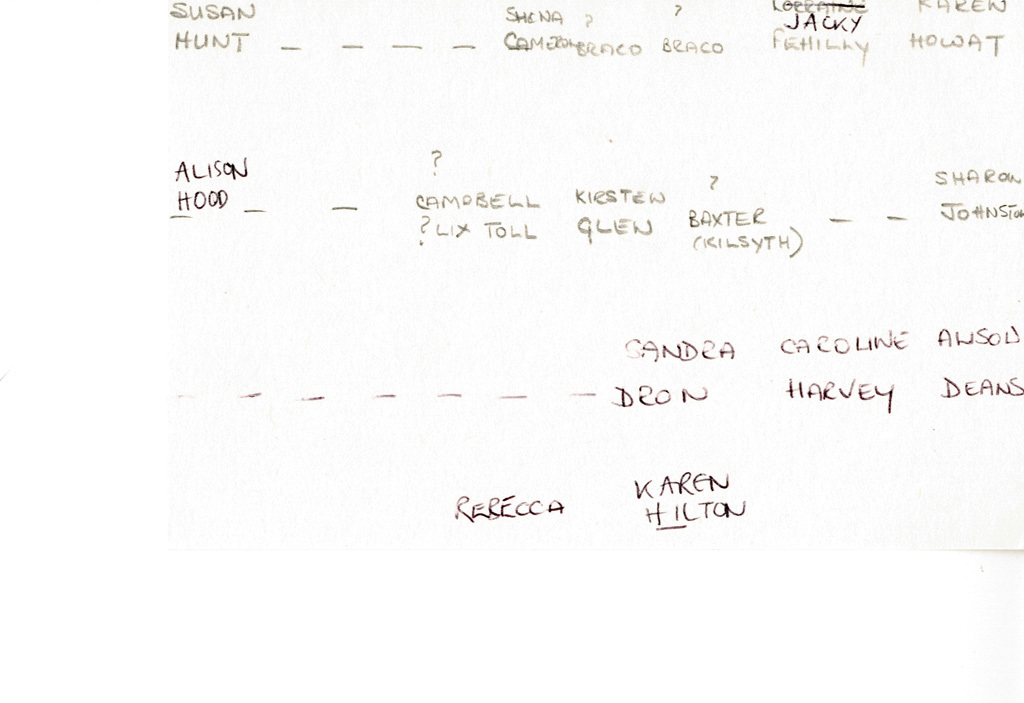 SUSAN SHENA ? ? LORRAINE KAREN
JACKY
HUNT – – – – CAMERON BRACO BRACO FEHILLY HOWAT
ALISON ? ? SHARON
HOOD – – CAMPBELL KIRSTEN BAXTER – – JOHNSTON
? LIX TOLL GLEN (KILSYTH)
SANDRA CAROLINE ALISON
– – – – – – – DRON HARVEY DEANS
REBECCA KAREN
HILTON